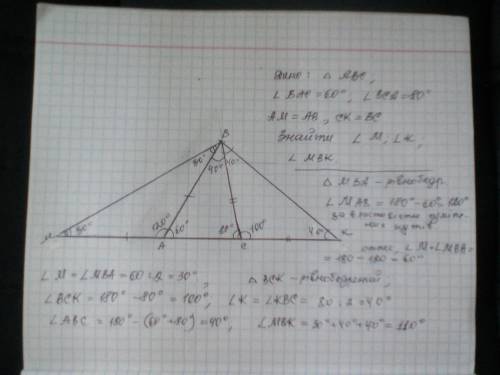 Дано: △ ABC,
∠ BAC = 60°, ∠ BCA = 80°
AM = AB, CK = BC
Знайти ∠ M, ∠K,
∠ MBK
△ MBA - рівнобедр
∠ MAB = 180° - 60° = 120°
за властивістю суміж-
них кутів
отже, ∠M + ∠MBA =
= 180 - 120 = 60°
B
30° 40° 40°
M 30° 120° 60° 80° 100° 40° K
A C
∠M = ∠MBA = 60 : 2 = 30°, △ BCK - рівнобедрений,
∠BCK = 180° - 80° = 100°, ∠K = ∠KBC = 80 : 2 = 40°
∠ABC = 180° - (60° + 80°) = 40°, ∠MBK = 30° + 40° + 40° = 110°